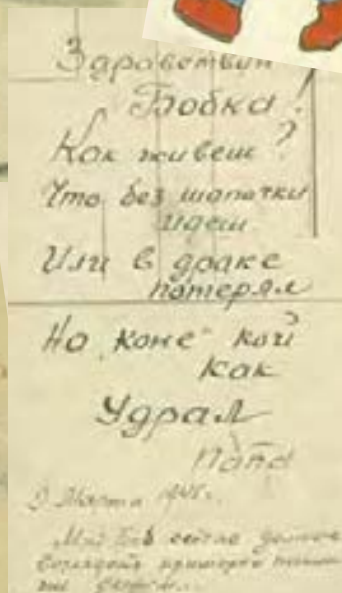 Здравствий
Бобка!
Как живеш?
Что без шапочки
идеш
Или в драке
потерял
Но коне кой
как
Удрал
Папа
9 Марта
Мой сейчас должно